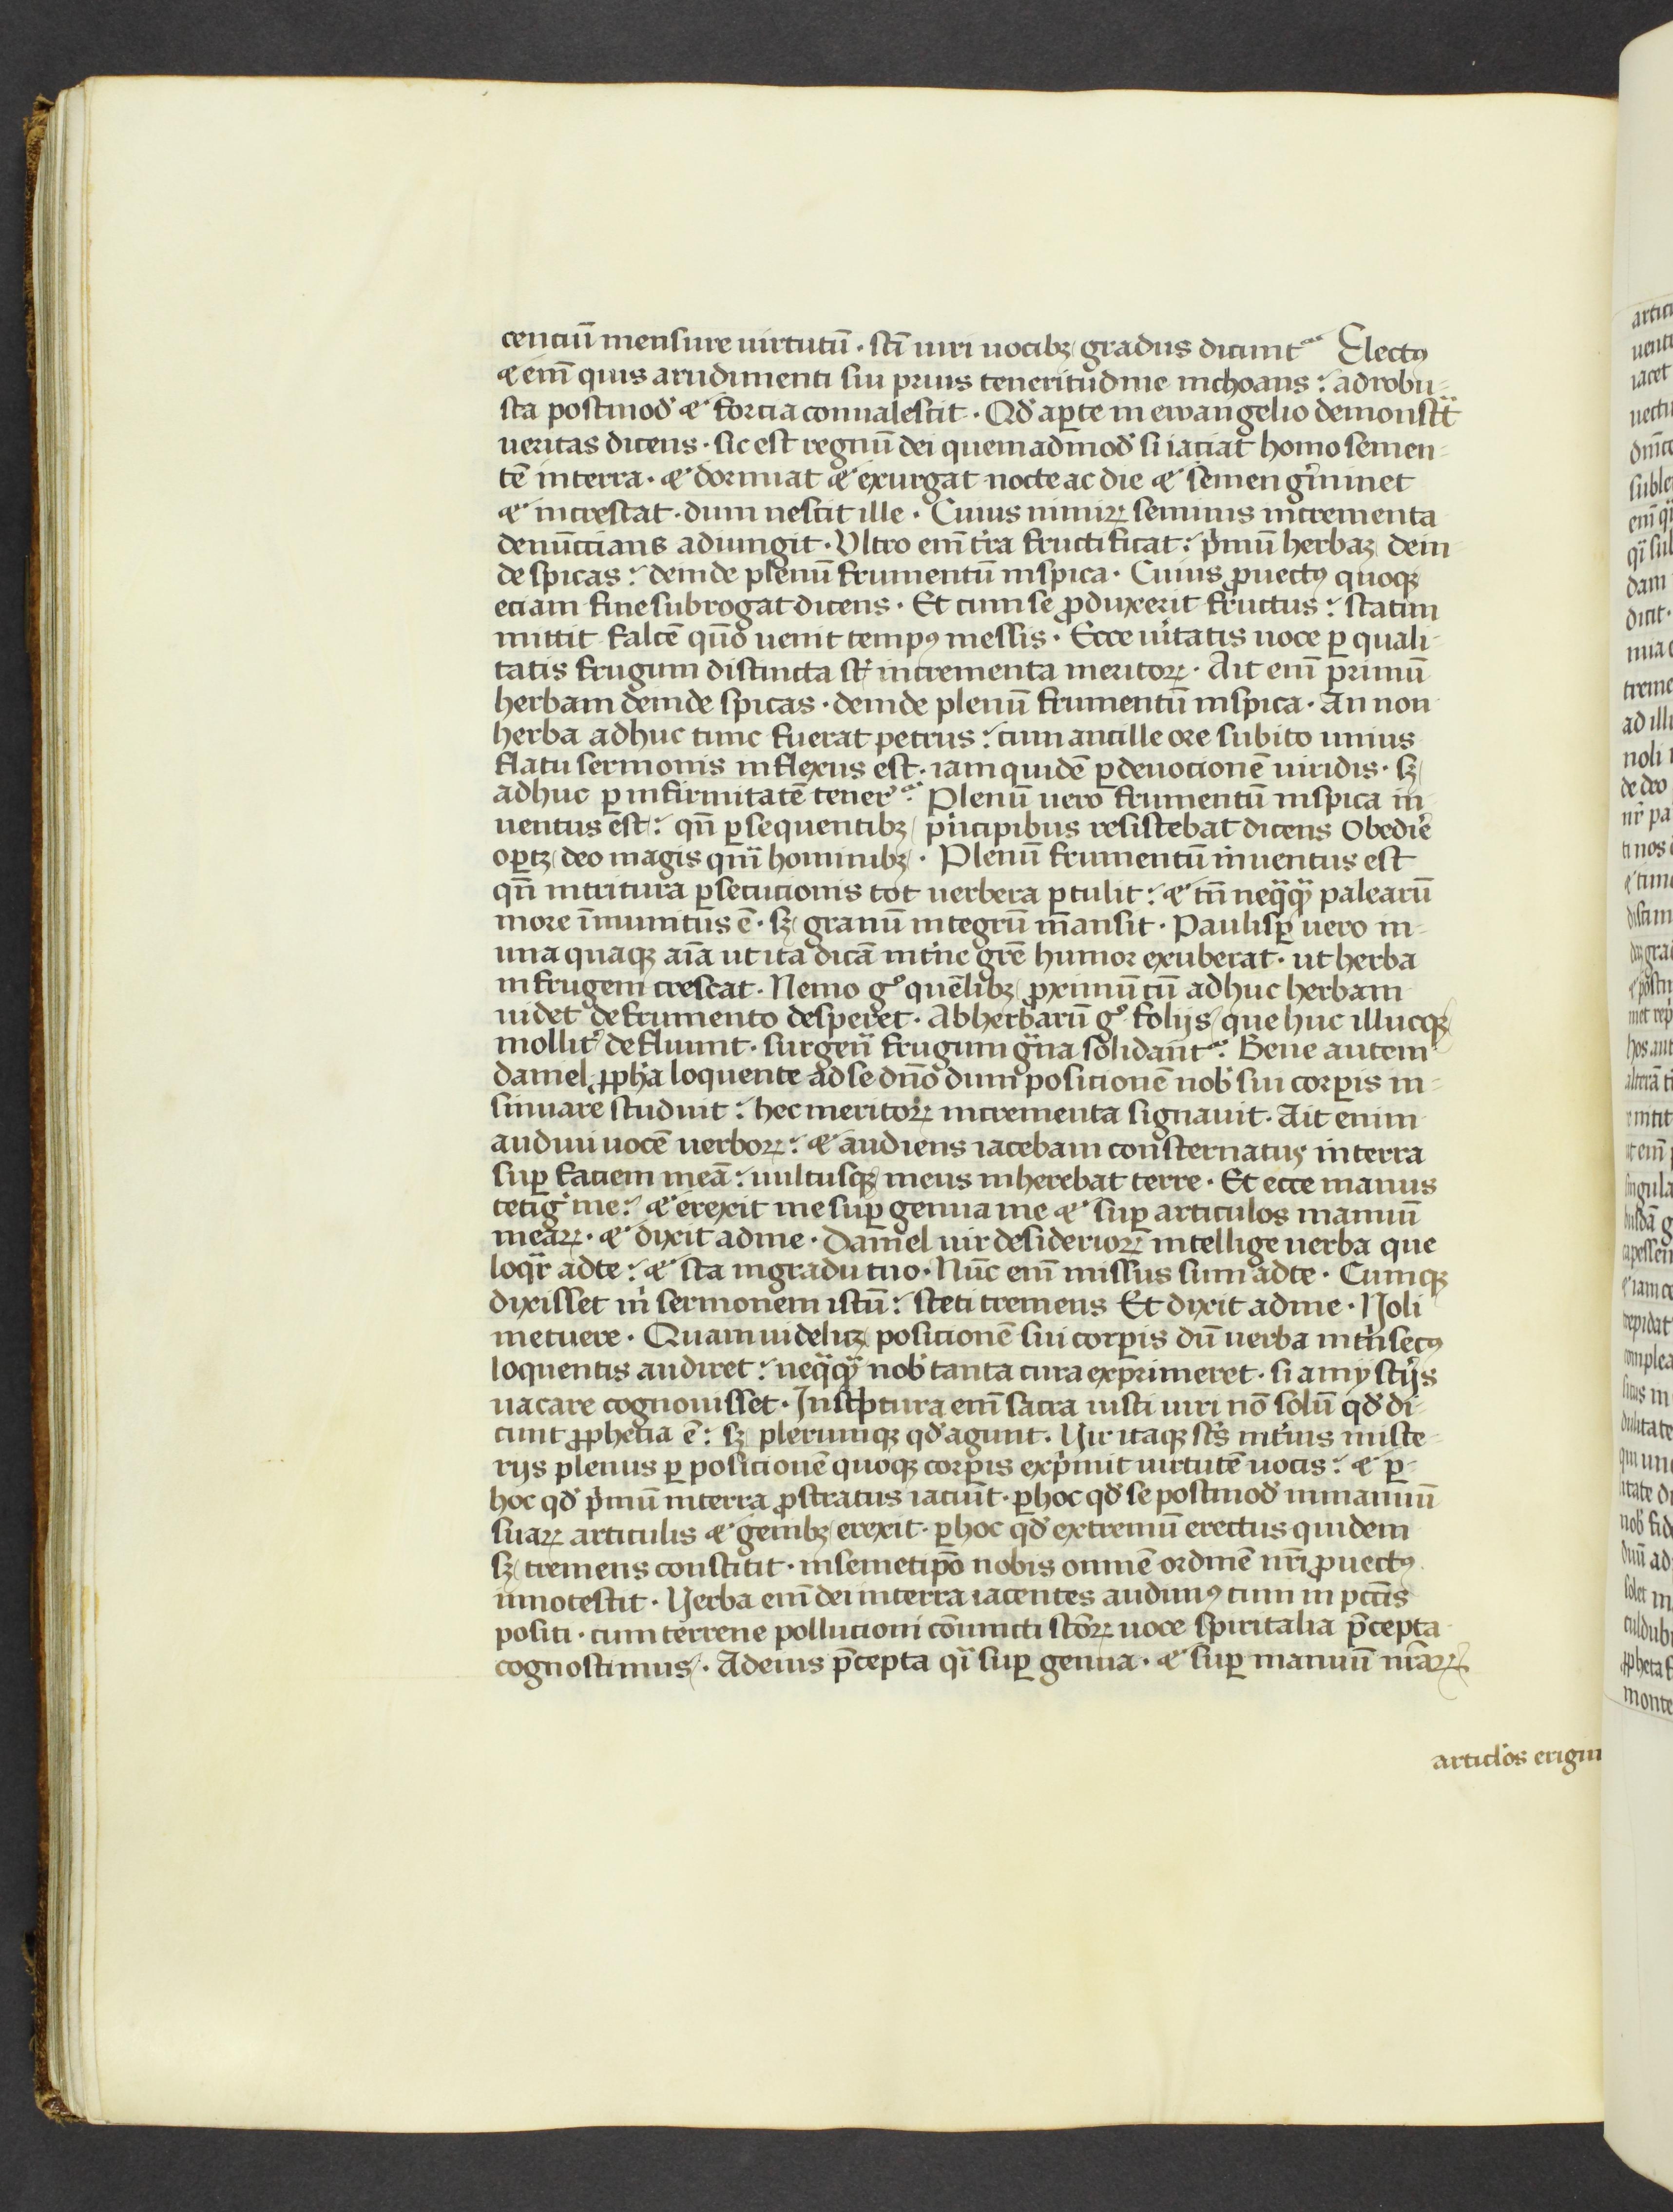 cenciū mensure uirtutū · sc̄i uiri uocibꝫ gradus dicunt᷑ Electꝰ
& eni᷑ quis a rudimenti sui prius teneritudine inchoans : ad robu-
sta postmod̓ & forcia conualescit · Qd̓ aꝑte in ewangelio demonstᵃt
ueritas dicens · sic est regnū dei quemadmod̓ si iaciat homo semen-
tē in terra · & dormiat & exurgat nocte ac die & semen gͥminet
& increscat · dum nescit ille · Cuius nimiꝝ seminis incrementa
denūccians adiungit · Vltro eni᷑ t̓ra fructificat : pͥmū herbaꝫ dein
de spicas : deinde plenū frumentū in spica · Cuius ꝓuectꝰ quoqꝫ
eciam fine subrogat dicens · Et cum se ꝓduxerit fructus : statim
mittit falcē qn̄o uenit tempꝰ messis · Ecce uͥtatis uoce ꝑ quali-
tatis frugum distincta st̄ incrementa meritoꝝ · Ait eni᷑ primū
herbam deinde spicas · deinde plenū frumentū in spica · An non
herba adhuc tunc fuerat petrus : cum ancille ore subito unius
flatu sermonis inflexus est · iam quidē ꝑ deuocionē uiridis · sꝫ
adhuc ꝑ infirmitatē tener᷑ : Plenū uero frumentū in spica in-
uentus est : qn̄ ꝑsequentibꝫ pͥncipibus resistebat dicens Obedir̄e
oꝑtꝫ deo magis quā hominibꝫ · Plenū frumentū inuentus est
qn̄ in tritura ꝑsecucionis tot uerbera ꝑtulit : & tn̄ neqᵃqᵃ palearū
more īminutus ē · sꝫ granū integrū mansit · Paulisꝑ uero in
una quaqꝫ aīa ut ita dicā int̓ne grē humor exuberat · ut herba
in frugem crescat · Nemo gͦ quēlibꝫ ꝓximū cū adhuc herbam
uidet de frumento desperet · Ab herbarū gͦ folijs que huc illucqꝫ
mollit̓ defluunt · surgen̄ frugum gᵃna solidant᷑ · Bene autem
daniel ꝓph̄a loquente ad se dn̄o dum posicionē nob̓ sui corꝑis in-
sinuare studuit : hec meritoꝝ incrementa signauit · Ait enim
audiui uocē uerboꝝ : & audiens iacebam consternatus in terra
suꝑ faciem meā : uultusqꝫ meus inherebat terre · Et ecce manus
tetig̓ me : & erexit me suꝑ genua me & suꝑ articulos manuū
meaꝝ · & dixit ad me · Daniel uir desiderioꝝ intellige uerba que
loqᵃr ad te : & sta in gradu tuo · Nūc eni᷑ missus sum ad te · Cumqꝫ
dixisset m̓ sermonem istū : steti tremens Et dixit ad me · Noli
metuere · Quam uidelicꝫ posicionē sui corꝑis dū uerba intͥnsecꝰ
loquentis audiret : neqᵃqᵃ nob̓ tanta cura exprimeret · si a mystͥjs
uacare cognouisset · In sͨptura eni᷑ sacra iusti uiri nō solū qd̓ di-
cunt ꝓphecia ē : sꝫ plerumqꝫ qd̓ agunt · Vir itaqꝫ sc̄s int̓nis miste-
rijs plenus ꝑ posicionē quoqꝫ corꝑis expͥmit uirtutē uocis : & ꝑ
hoc qd̓ pͥmū in terra ꝓstratus iacuit · ꝑ hoc qd̓ se postmod̓ in manuū
suaꝝ articulis & genibꝫ erexit · ꝑ hoc qd̓ extremū erectus quidem
sꝫ tremens constitit · in semetip̄o nobis omnē ordinē nr̄i ꝓuectꝰ
innotescit · Verba eni᷑ dei in terra iacentes audimꝰ cum in pctīs
positi · cum terrene pollucioni cōiuncti sc̄oꝝ uoce spiritalia p̄cepta
cognoscimus · Ad eius p̄cepta qᵃi suꝑ genua · & suꝑ manuū nr̄aꝝ
articl̓os erigim